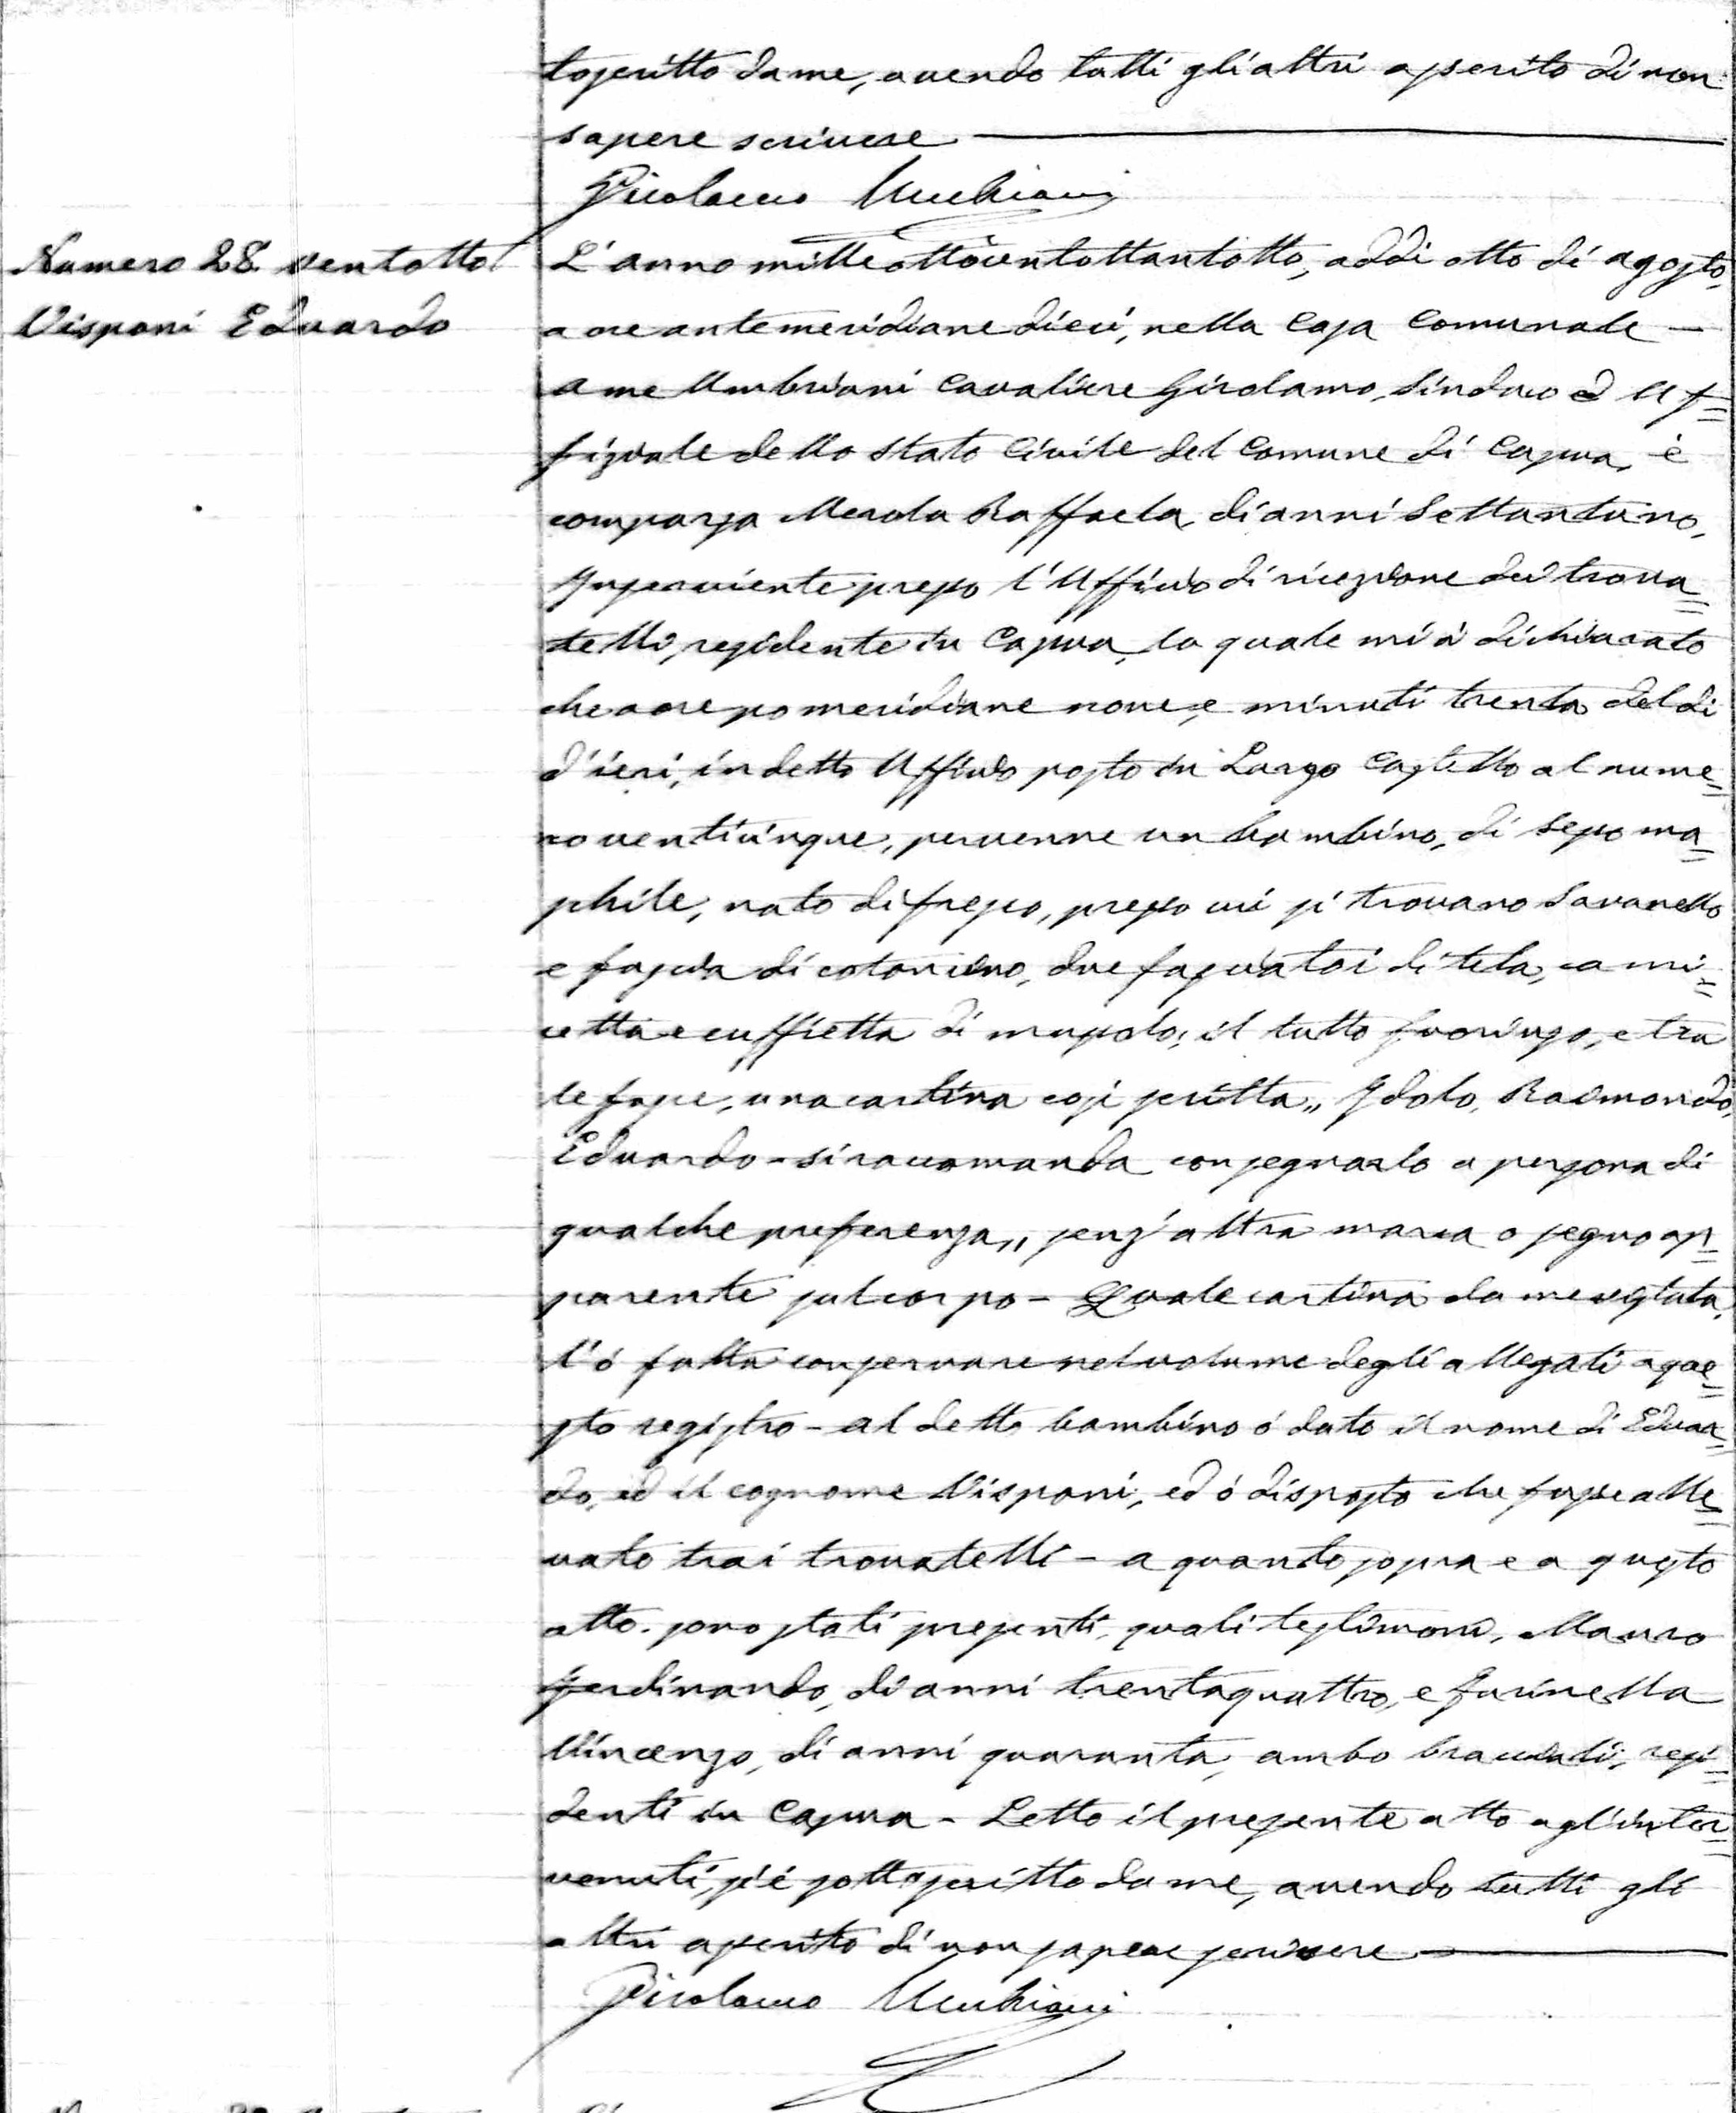 toscritto da me, avendo tutti gli altri asserito di non
sapere scrivere
Girolamo Umbriani
Numero 28. ventotto
Visponi Eduardo
L'anno milleottocentottantotto, addi otto di agosto,
a ore antemeridiane dieci, nella Casa Comunale
a me Umbriani Cavaliere Girolamo, Sindaco ed Uf=
fiziale dello Stato Civile del Comune di Capua, è
comparsa Merola Raffaela, di anni Settantuno,
Inserviente presso l'Uffizio di ricezione dei trova=
telli, residente in Capua, la quale mi à dichiarato
che a ore pomeridiane nove, e minuti trenta del di
d'ieri, in detto Uffizio posto in Largo Castello al nume=
ro venticinque, pervenne un bambino, di sesso ma=
schile, nato di fresco, presso cui si trovano Savanello
e fascia di cotonino, due fasciatoi di tela, cami=
cetta e cuffietta di mussolo; il tutto fuoriuso, e tra
le fasce, una cartina così scritta „ Idolo, Raimondo,
Eduardo - si raccomanda consegnarlo a persona di
qualche preferenza „, senz'altra marca o segno ap=
parente sul corpo - Quale cartina da me vistata,
l'ò fatta conservare nel volume degli allegati a que=
sto registro - al detto bambino ó dato il nome di Eduar=
do, ed il cognome Visponi, ed ó disposto che fosse alle=
vato tra i trovatelli - a quanto sopra e a questo
atto. sono stati presenti, quali testimoni, Mauro
Ferdinando, di anni trentaquattro, e Farinella
Vincenzo, di anni quaranta, ambo bracciali, resi=
denti in Capua - Letto il presente atto agl'inter=
venuti, si é sottoscritto da me, avendo tutti gli
altri asserito di non sapere scrivere
Girolamo Umbriani